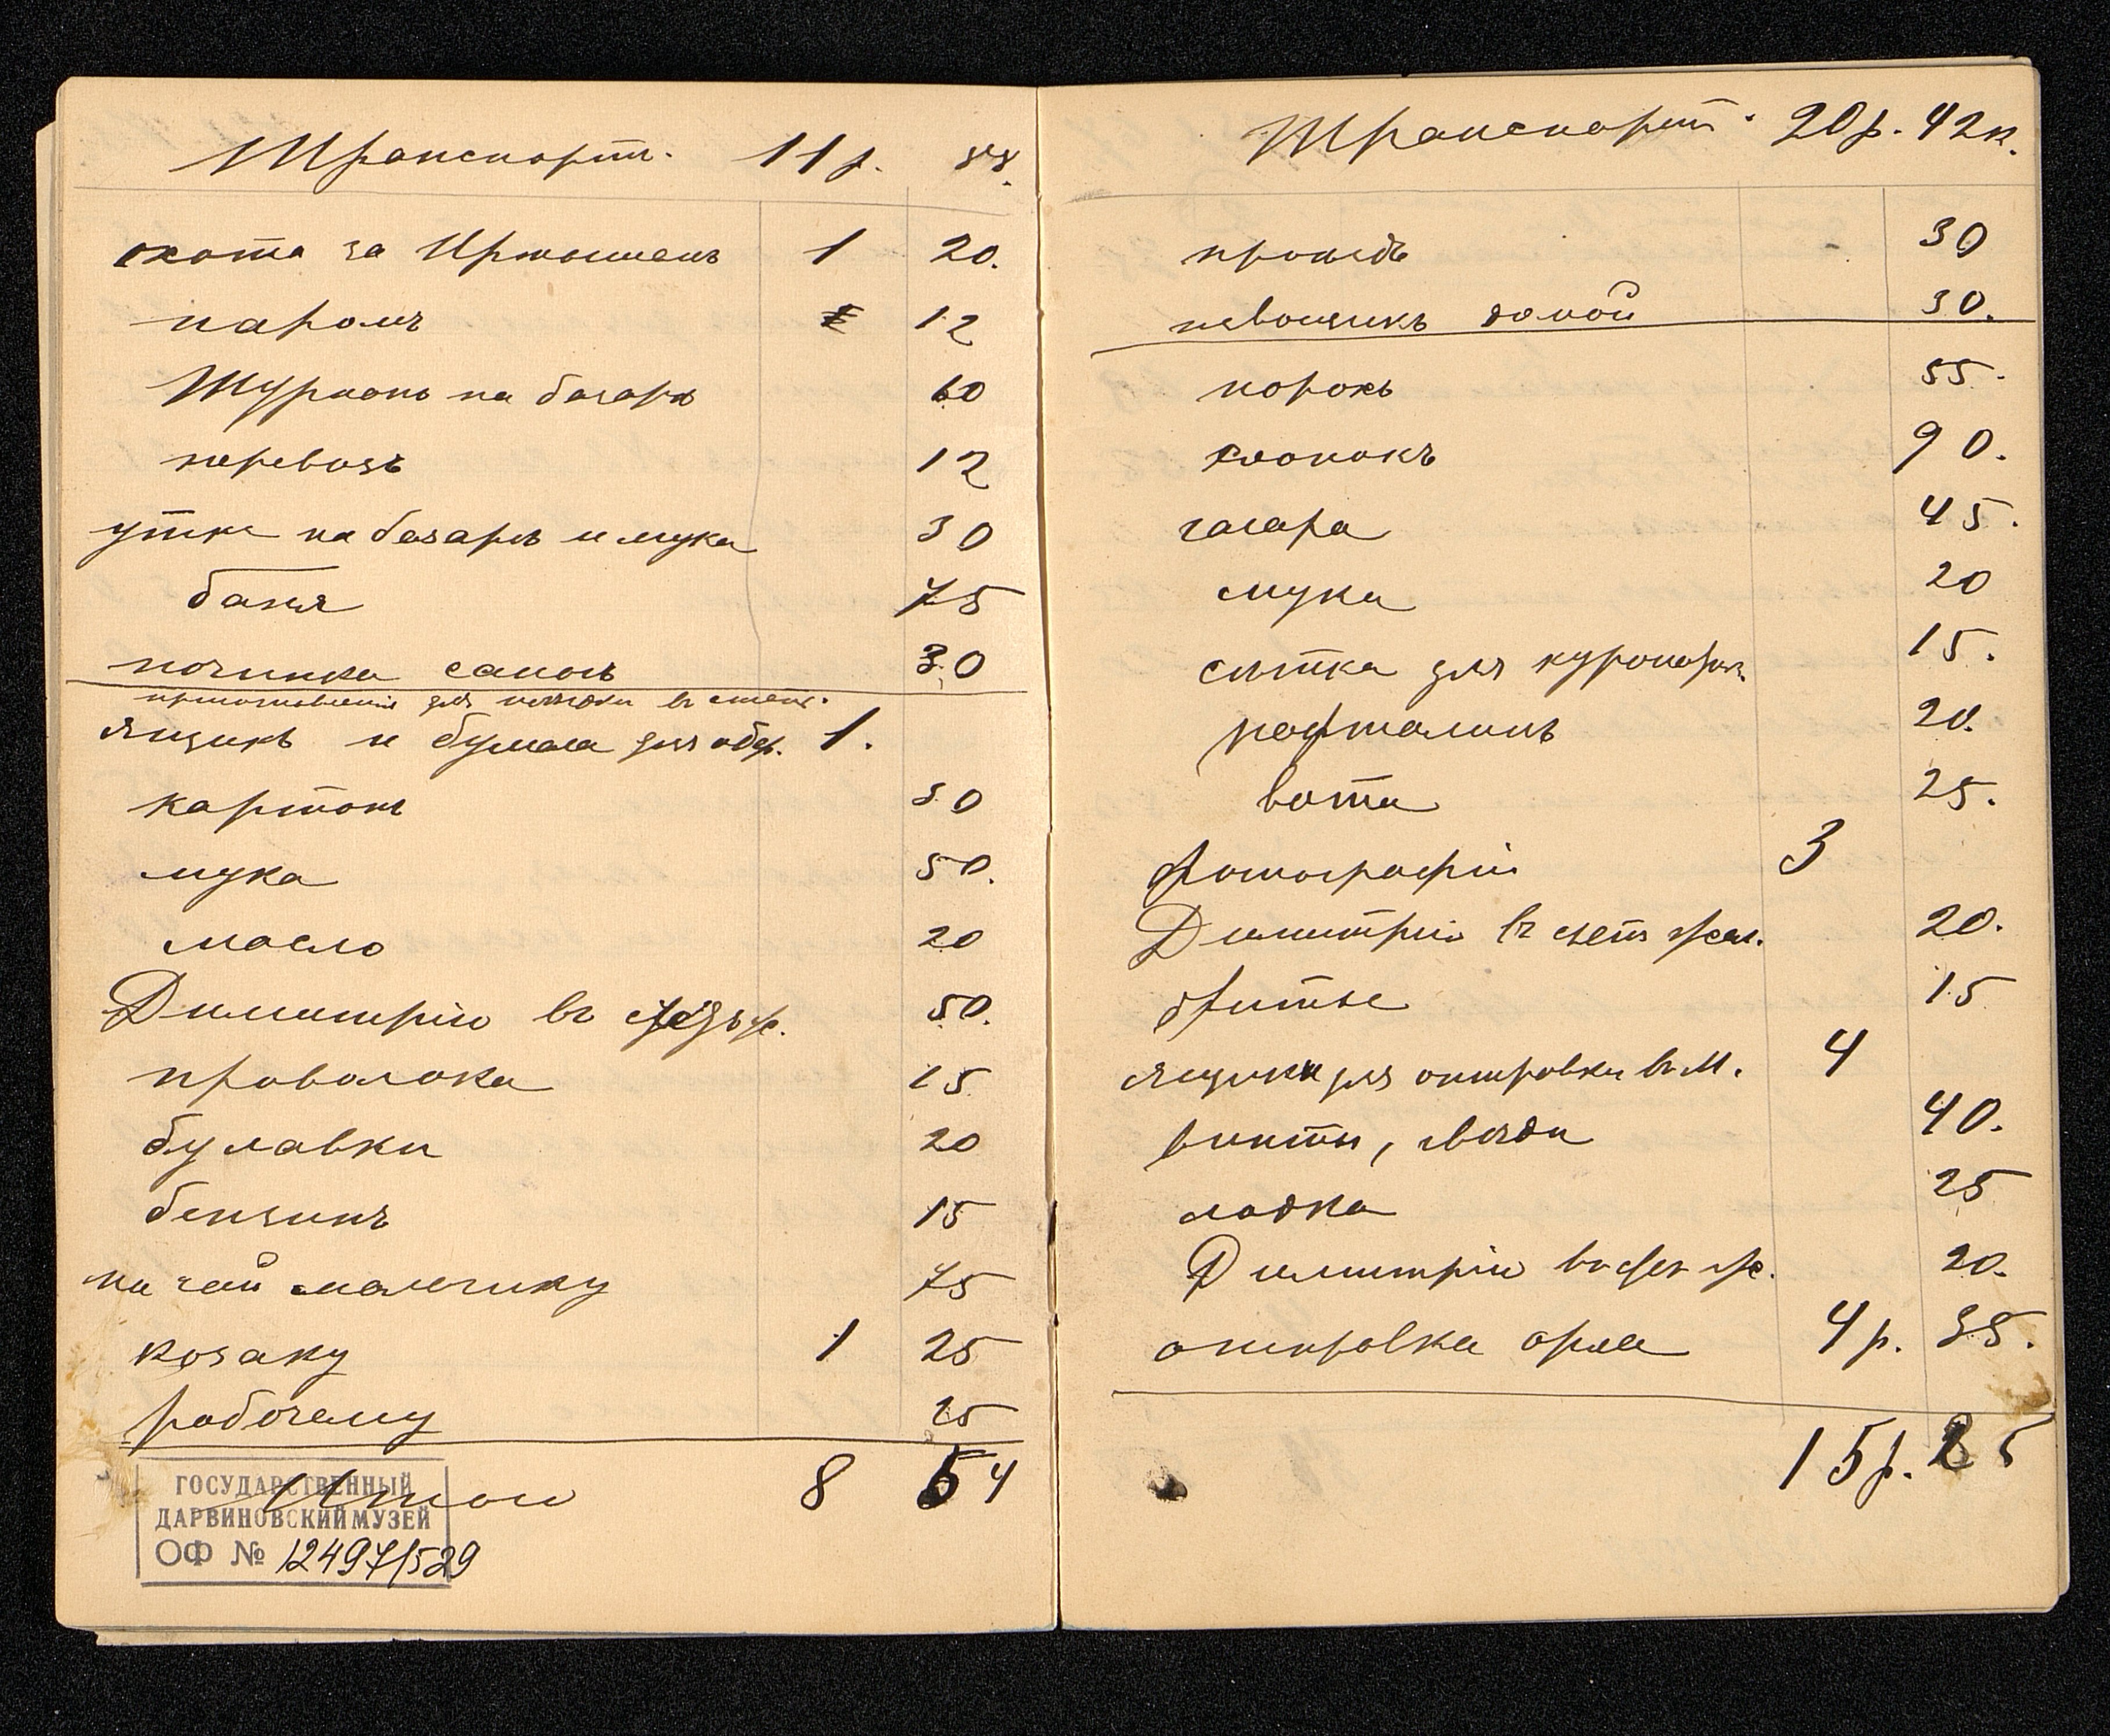 Транспортъ. 11 р. 88.
охота за Иртышемъ 1 20.
паромъ 12
Турманъ на базарѣ 60
перевозъ 12
утки на базарѣ и мука 30
баня 75
починка сапогъ 30
приготовленія для поѣздки въ степь.
Ящикъ и бумага для обер. 1.
картонъ 50
мука 50.
масло 20
Димитрію въ 50.
проволока 15
булавки 20
бензинъ 15
на чай мальчику 75
козаку 1 25
рабочему 25
Итого 8 54
ГОСУДАРСТВЕННЫЙ
ДАРВИНОВСКИЙ МУЗЕЙ
ОФ № 12497/529
Транспортъ. 20 р. 42 к.
проѣздъ 30
извощикъ домой 30.
порохъ 55.
хлопокъ 90.
гагара 45.
мука 20
сѣтка для куропат. 15.
нафталинъ 20.
вата 25.
Фотографіи 3
Димитрію въ счетъ жал. 20.
бритье 15
Ящики для отправки въ М. 4
винты, гвозди 40.
лодка 25
Димитрію въ 20.
отправка орла 4 р. 35.
15 р. 25